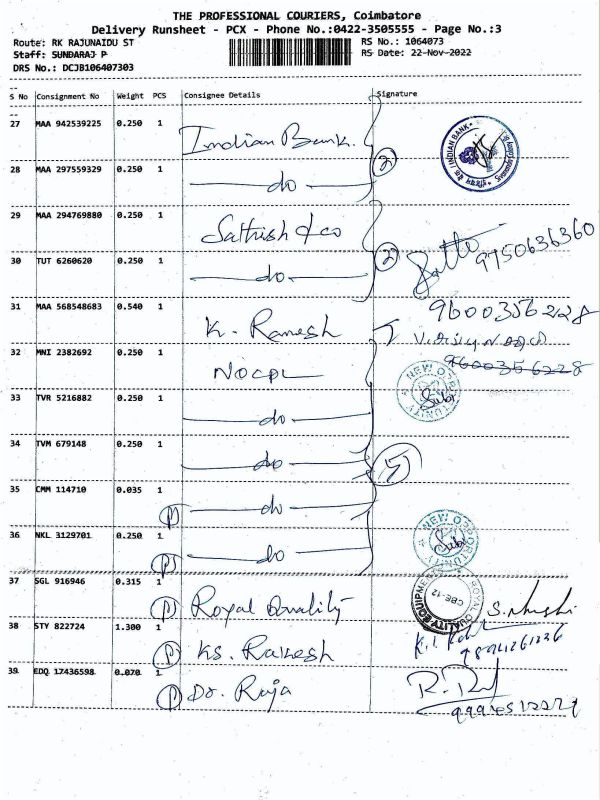 THE PROFESSIONAL COURIERS, Coimbatore
Delivery Runsheet - PCX - Phone No.:0422-3505555 - Page No.:3
Route: RK RAJUNAIDU ST
RS No.: 1064073
Staff: SUNDARAJ P
RS Date: 22-Nov-2022
DRS No.: DCJB106407303
S No Consignment No Weight PCS Consignee Details Signature
27 MAA 942539225 0.250 1 Indian Bank.
INDIAN BANK
28 MAA 297559329 0.250 1 do
2
29 MAA 294769880 0.250 1 Sathish & co
30 TUT 6260620 0.250 1 do
2
9750636360
31 MAA 568548683 0.540 1 K. Ramesh
9600356228
32 MNI 2382692 0.250 1 NOCPL
9600356228
NEW OPPORTUNITY
33 TVR 5216882 0.250 1 do
34 TVM 679148 0.250 1 do
5
35 CMM 114710 0.035 1 do
36 NKL 3129701 0.250 1 do
NEW OPPORTUNITY
37 SGL 916946 0.315 1 Royal Quality
ROYAL QUALITY EQUIPMENT
CBE-12
38 STY 822724 1.300 1 KS. Rakesh
39 EDQ 17436598 0.070 1 Dr. Raja